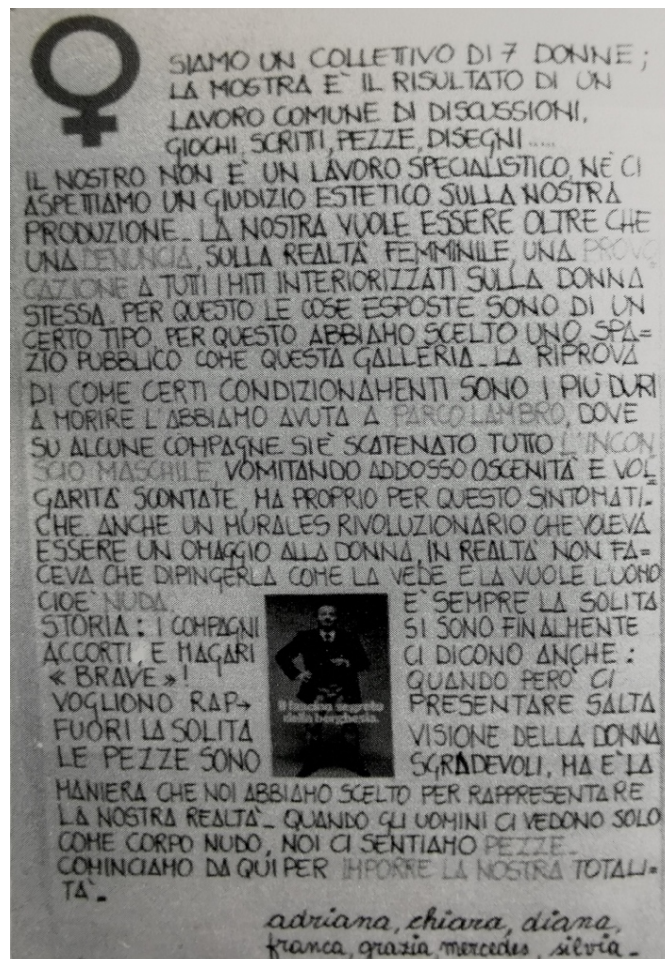 SIAMO UN COLLETTIVO DI 7 DONNE;
LA MOSTRA E' IL RISULTATO DI UN
LAVORO COMUNE DI DISCUSSIONI,
GIOCHI, SCRITTI, PEZZE, DISEGNI.....
IL NOSTRO NON E' UN LAVORO SPECIALISTICO, NE' CI
ASPETTIAMO UN GIUDIZIO ESTETICO SULLA NOSTRA
PRODUZIONE_ LA NOSTRA VUOLE ESSERE OLTRE CHE
UNA DENUNCIA, SULLA REALTA' FEMMINILE, UNA PROVO
CAZIONE A TUTTI I MITI INTERIORIZZATI SULLA DONNA
STESSA. PER QUESTO LE COSE ESPOSTE SONO DI UN
CERTO TIPO, PER QUESTO ABBIAMO SCELTO UNO SPA=
ZIO PUBBLICO COME QUESTA GALLERIA_ LA RIPROVA
DI COME CERTI CONDIZIONAMENTI SONO I PIU' DURI
A MORIRE L'ABBIAMO AVUTA A PARCO LAMBRO, DOVE
SU ALCUNE COMPAGNE SI E' SCATENATO TUTTO L'INCON
SCIO MASCHILE VOMITANDO ADDOSSO OSCENITA' E VOL=
GARITA' SCONTATE, MA PROPRIO PER QUESTO SINTOMATI-
CHE. ANCHE UN MURALES RIVOLUZIONARIO CHE VOLEVA
ESSERE UN OMAGGIO ALLA DONNA, IN REALTA' NON FA=
CEVA CHE DIPINGERLA COME LA VEDE E LA VUOLE L'UOMO
CIOE' NUDA. E' SEMPRE LA SOLITA
STORIA: I COMPAGNI SI SONO FINALMENTE
ACCORTI, E MAGARI CI DICONO ANCHE:
« BRAVE »! QUANDO PERO' CI
VOGLIONO RAP→ PRESENTARE SALTA
FUORI LA SOLITA VISIONE DELLA DONNA
LE PEZZE SONO SGRADEVOLI, MA E' LA
Il fascino segreto
della borghesia.
MANIERA CHE NOI ABBIAMO SCELTO PER RAPPRESENTARE
LA NOSTRA REALTA'_ QUANDO GLI UOMINI CI VEDONO SOLO
COME CORPO NUDO, NOI CI SENTIAMO PEZZE_
COMINCIAMO DA QUI PER IMPORRE LA NOSTRA TOTALI=
TA'_
adriana, chiara, diana,
franca, grazia, mercedes, silvia_